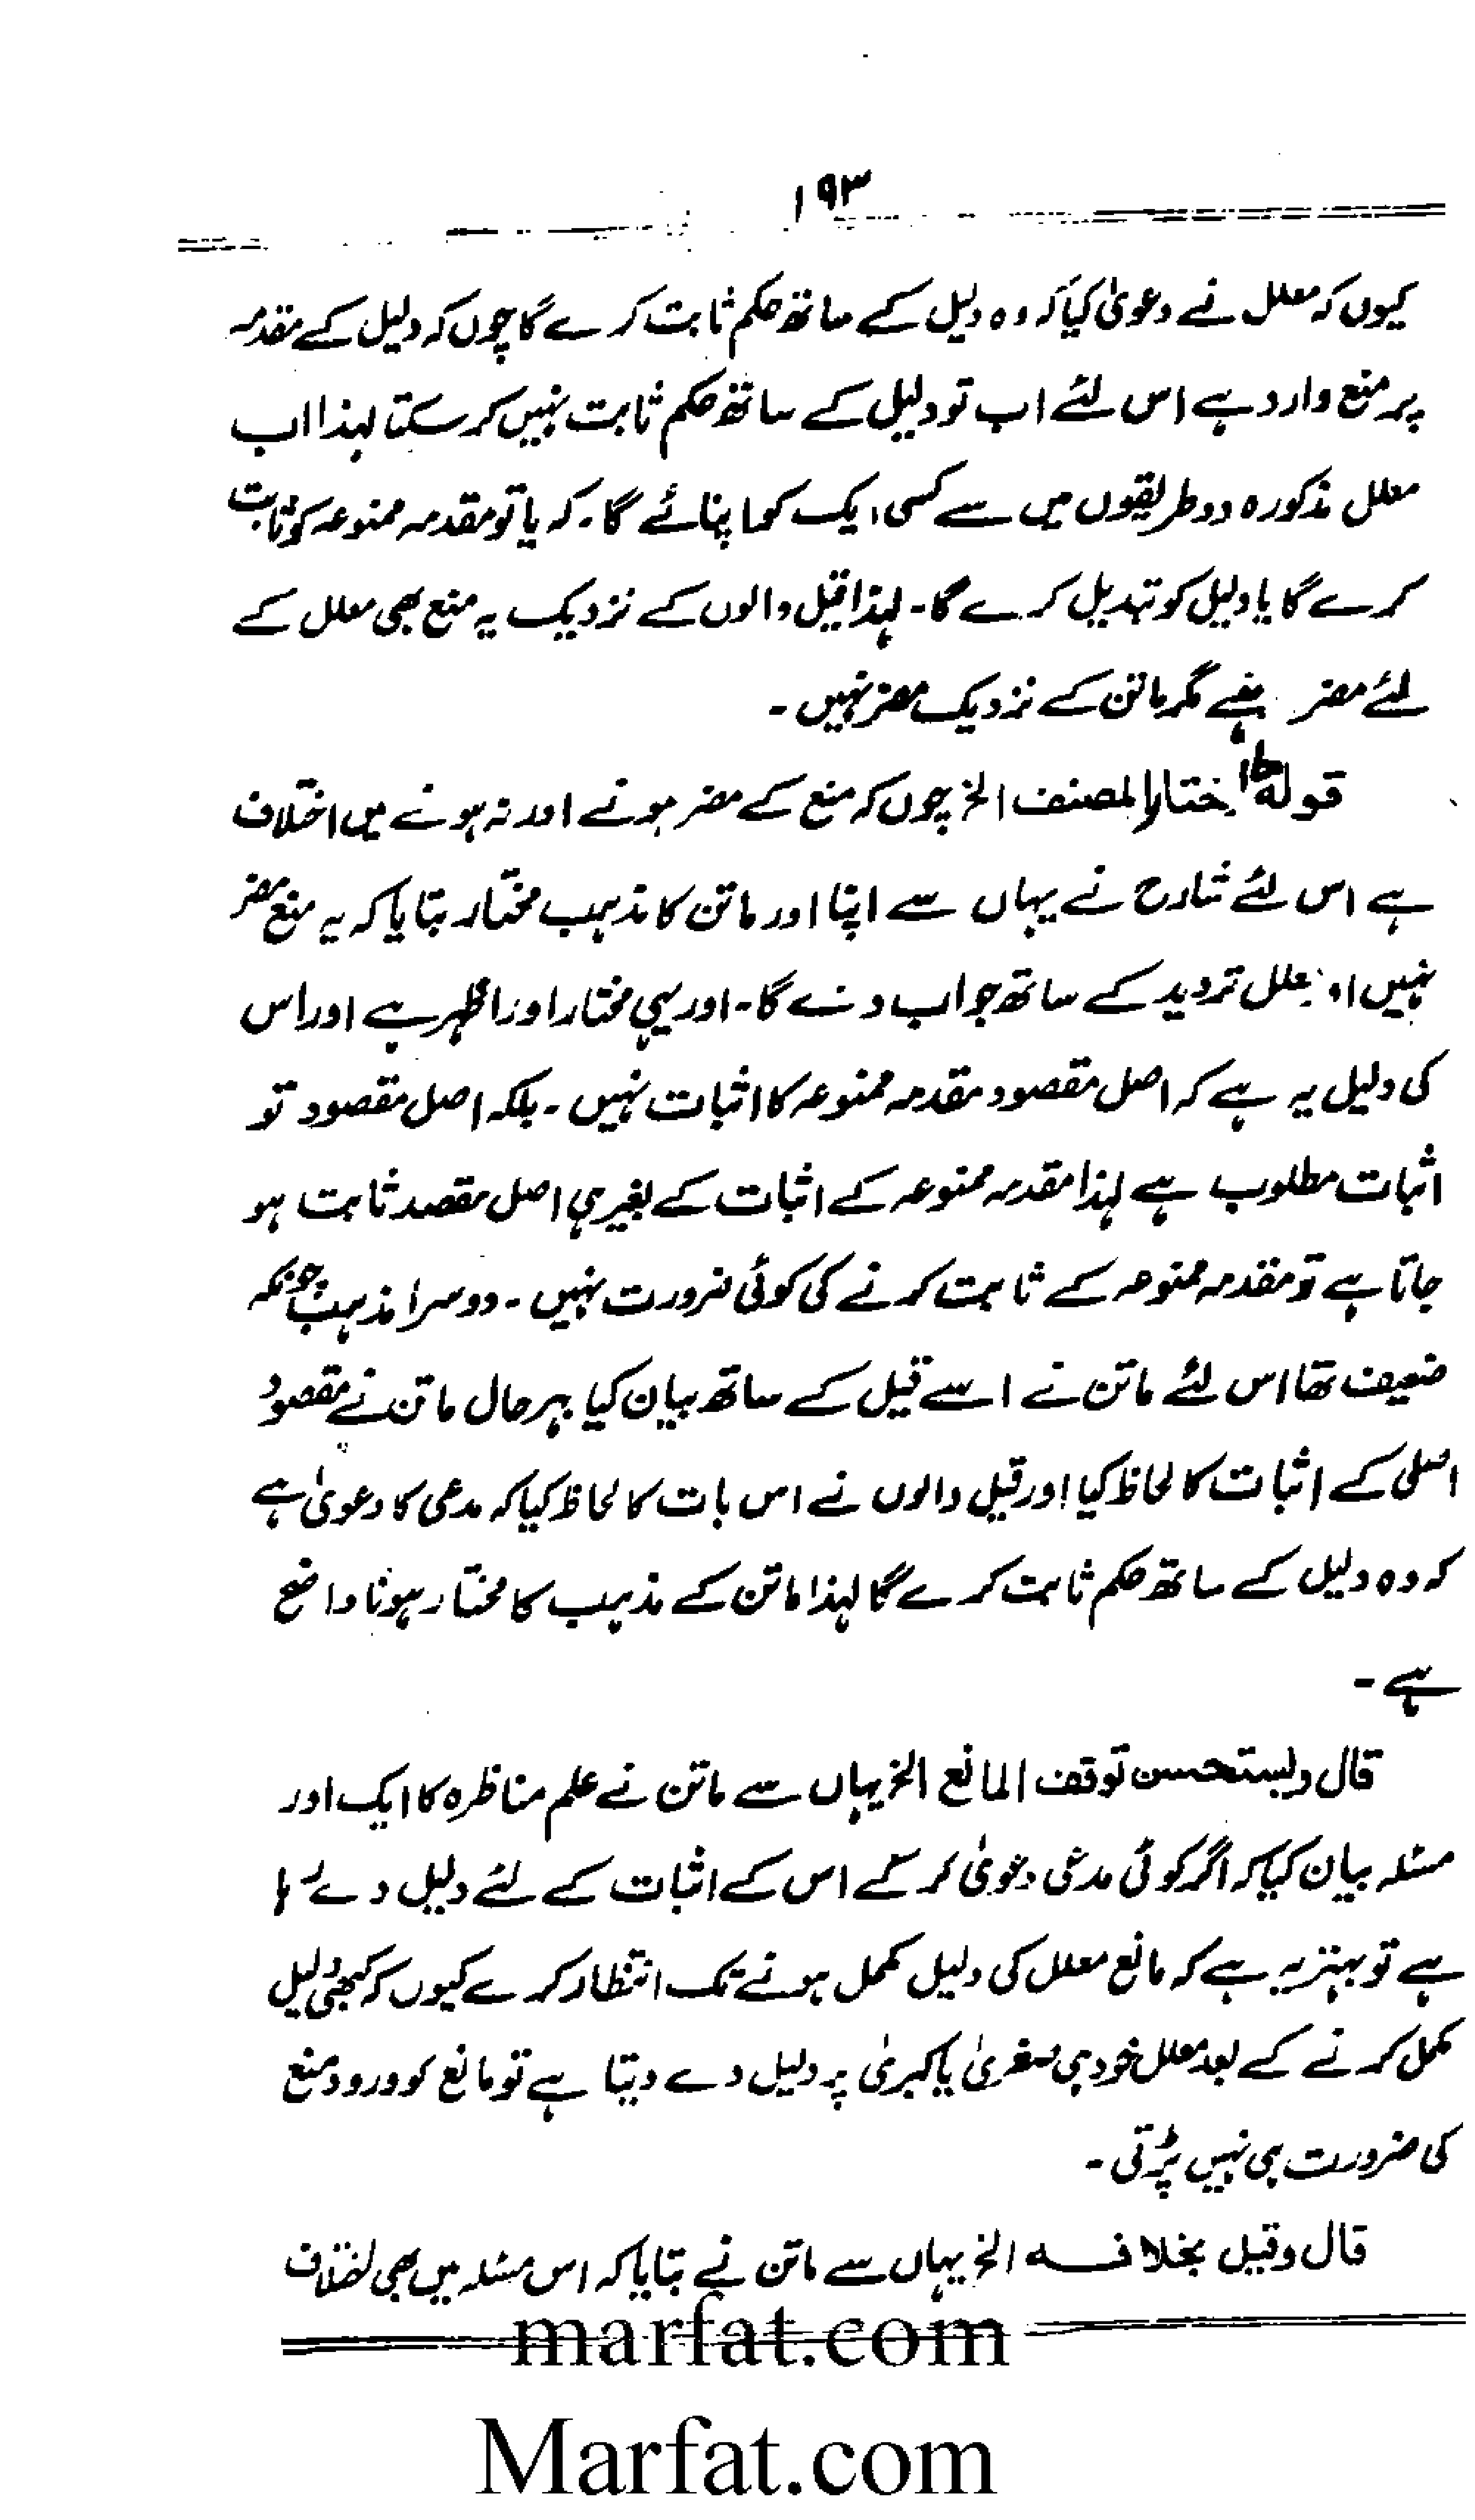 ۱۹۳
کیوں کہ معلل نے دعویٰ کیا کہ وہ دلیل کے ساتھ حکم ثابت کرے گا چوں کہ دلیل کے مقدمہ
پر منع وارد ہے اس لئے اب تو دلیل کے ساتھ حکم ثابت نہیں کر سکتا لہذا اب
معلل مذکورہ دو طریقوں میں سے کسی ایک کو اپنائے گا۔ کہ یا تو مقدمہ ممنوعہ کو ثابت
کرے گا یا دلیل کو تبدیل کرے گا۔ لہذا قیل والوں کے نزدیک یہ منع بھی معلل کے
لئے مضر ہے مگر ماتن کے نزدیک مضر نہیں۔
قولہ اختار المصنف الخ چوں کہ منع کے مضر ہونے اور نہ ہونے میں اختلاف
ہے اس لئے شارح نے یہاں سے اپنا اور ماتن کا مذہب مختار بتایا کہ یہ منع مضر
نہیں اور معلل تردید کے ساتھ جواب دے گا۔ اور یہی مختار اور اظہر ہے اور اس
کی دلیل یہ ہے کہ اصل مقصود مقدمہ ممنوعہ کا اثبات نہیں۔ بلکہ اصل مقصود تو
اثبات مطلوب ہے لہذا مقدمہ ممنوعہ کے اثبات کے بغیر ہی اصل مقصد ثابت ہو
جاتا ہے تو مقدمہ ممنوعہ کے ثابت کرنے کی کوئی ضرورت نہیں۔ دوسرا مذہب چونکہ
ضعیف تھا اس لئے ماتن نے اسے قیل کے ساتھ بیان کیا بہر حال ماتن نے مقصود
اصلی کے اثبات کا لحاظ کیا اور قیل والوں نے اس بات کا لحاظ کیا کہ مدعی کا دعویٰ ہے
کہ وہ دلیل کے ساتھ حکم ثابت کرے گا لہذا ماتن کے مذہب کا مختار ہونا واضح
ہے۔
قال ویستحسن توقف المانع الخ یہاں سے ماتن نے علم مناظرہ کا ایک اور
مسئلہ بیان کیا کہ اگر کوئی مدعی دعویٰ کر کے اس کے اثبات کے لئے دلیل دے رہا
ہے تو بہتر یہ ہے کہ مانع معلل کی دلیل مکمل ہونے تک انتظار کرے کیوں کہ کبھی دلیل
مکمل کرنے کے بعد معلل خود ہی صغریٰ یا کبریٰ پر دلیل دے دیتا ہے تو مانع کو ورود منع
کی ضرورت ہی نہیں پڑتی۔
قال وقیل بخلافہ الخ یہاں سے ماتن نے بتایا کہ اس مسئلہ میں بھی اختلاف
marfat.com
Marfat.com